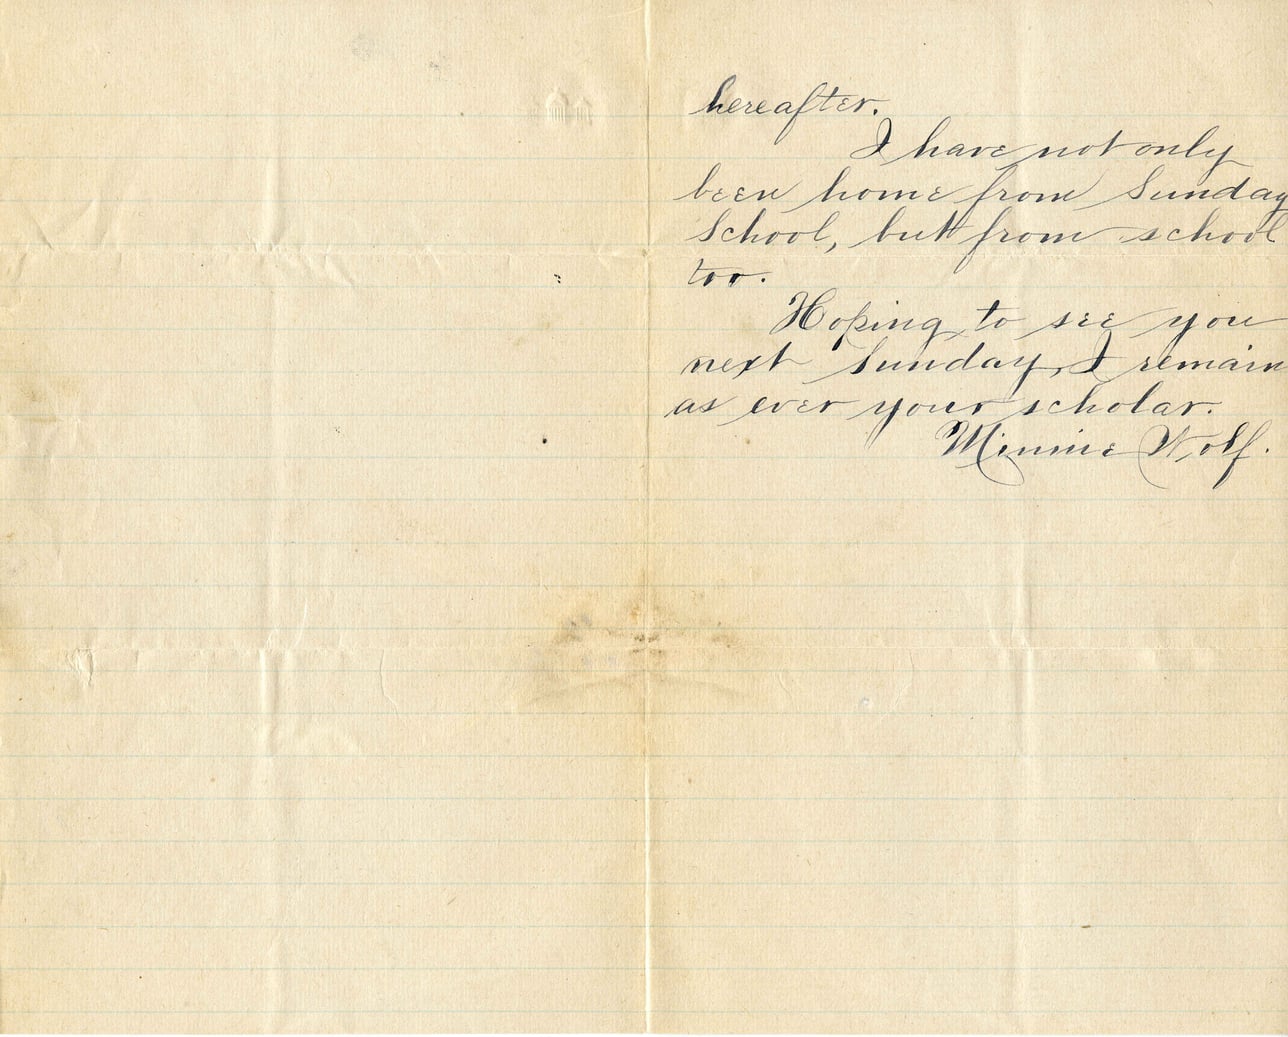 hereafter.
I have not only
been home from Sunday
School, but from school
too.
Hoping to see you
next Sunday, I remain
as ever your scholar.
Minnie Wolf.